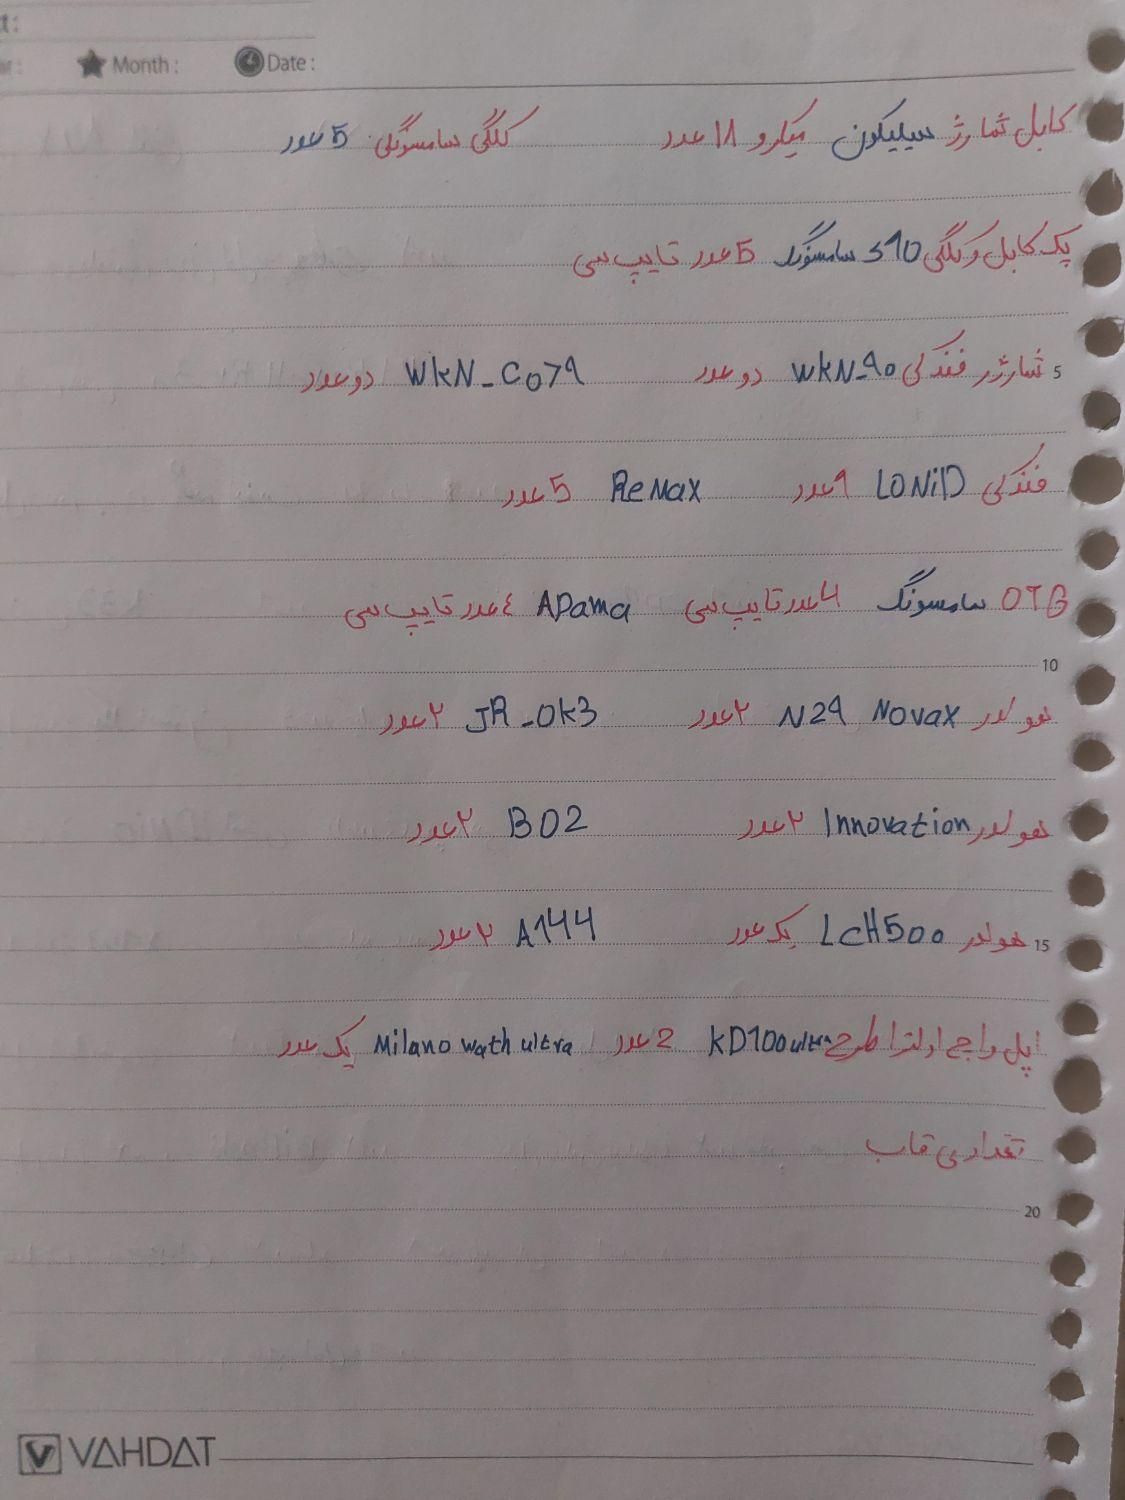 Month : Date :
کابل شارژ سیلیکون میکرو ۱۸ عدد کلگی سامسونگی 5 عدد
پک کابل و کلگی S10 سامسونگ 5 عدد تایپ سی
5 شارژر فندکی WKN-90 دو عدد WKN-C079 دو عدد
فندکی LONiD ۹ عدد ReMax 5 عدد
OTG سامسونگ 4 عدد تایپ سی APama ٤ عدد تایپ سی
10
هولدر Novax N29 ۲ عدد JR-OK3 ۲ عدد
هولدر Innovation ۲ عدد B02 ۲ عدد
15 هولدر LCH500 یک عدد A144 ۲ عدد
اپل واچ اولترا طرح KD100 ultra 2 عدد Milano wath ultra یک عدد
تعدادی قاب
20
VAHDAT